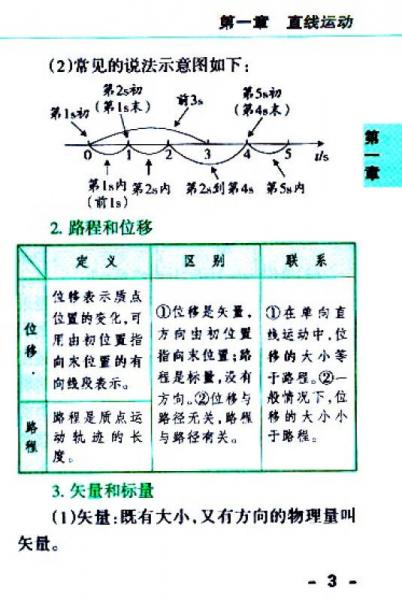 第一章 直线运动
(2)常见的说法示意图如下:
第1s初
第2s初
(第1s末)
前3s
第5s初
(第4s末)
0 1 2 3 4 5 t/s
第1s内 第2s内 第2s到第4s 第5s内
(前1s)
第一章
2. 路程和位移
定义 区别 联系
位移
位移表示质点
位置的变化,可
用由初位置指
向末位置的有
向线段表示。
路程
路程是质点运
动轨迹的长
度。
①位移是矢量,
方向由初位置
指向末位置;路
程是标量,没有
方向。②位移与
路径无关,路程
与路径有关。
①在单向直
线运动中,位
移的大小等
于路程。②一
般情况下,位
移的大小小
于路程。
3. 矢量和标量
(1)矢量:既有大小,又有方向的物理量叫
矢量。
- 3 -